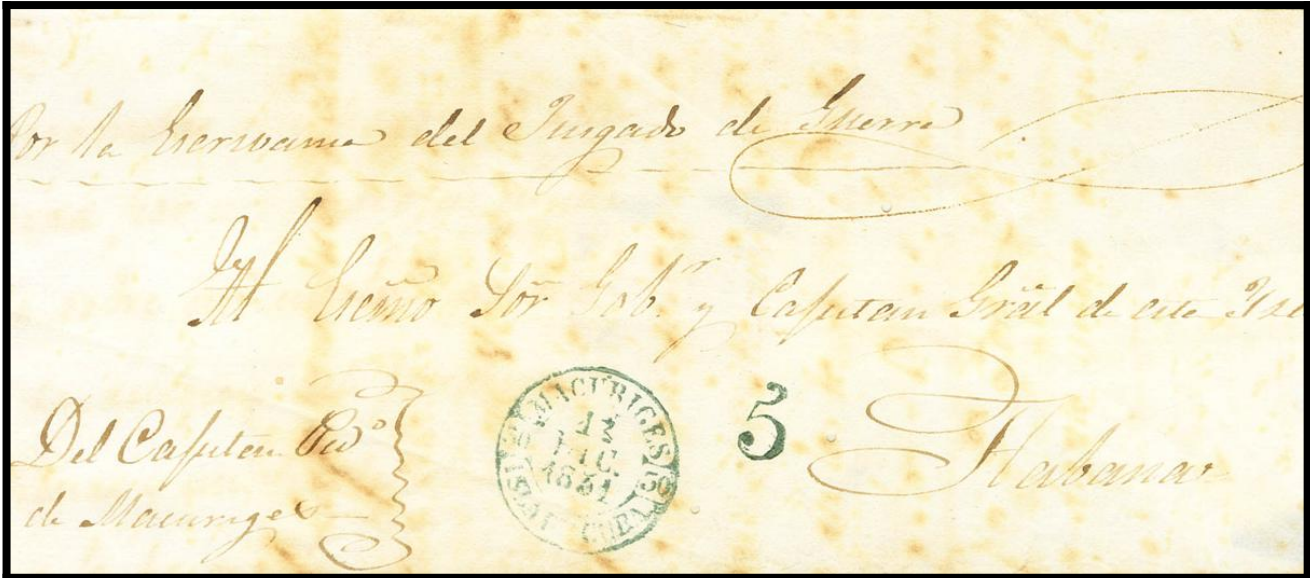 Por la Escribania del Juzgado de Guerra
Al Escmo Sor Gobr y Capitan Gral de esta Isl
Del Capitan Pdo
de Macuriges
MACURIGES
DIC
1851
ISLA DE CUBA
5
Habana